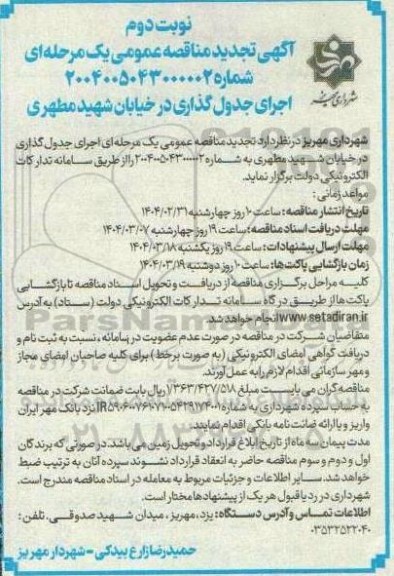 نوبت دوم
آگهی تجدید مناقصه عمومی یک مرحله‌ای
شماره ۲۰۰۴۰۰۵۰۴۳۰۰۰۰۰۲
اجرای جدول گذاری در خیابان شهید مطهری
شهرداری مهریز
شهرداری مهریز در نظر دارد تجدید مناقصه عمومی یک مرحله ای اجرای جدول گذاری
در خیابان شهید مطهری به شماره ۲۰۰۴۰۰۵۰۴۳۰۰۰۰۰۲ را از طریق سامانه تدارکات
الکترونیکی دولت برگزار نماید.
مواعد زمانی:
تاریخ انتشار مناقصه: ساعت ۱۰ روز چهارشنبه ۱۴۰۴/۰۲/۳۱
مهلت دریافت اسناد مناقصه: ساعت ۱۹ روز چهارشنبه ۱۴۰۴/۰۳/۰۷
مهلت ارسال پیشنهادات: ساعت ۱۹ روز یکشنبه ۱۴۰۴/۰۳/۱۸
زمان بازگشایی پاکت‌ها: ساعت ۱۰ روز دوشنبه ۱۴۰۴/۰۳/۱۹
کلیه مراحل برگزاری مناقصه از دریافت و تحویل اسناد مناقصه تا بازگشایی
پاکت‌ها از طریق درگاه سامانه تدارکات الکترونیکی دولت (ستاد) به آدرس
www.setadiran.ir انجام خواهد شد.
متقاضیان شرکت در مناقصه در صورت عدم عضویت در سامانه، نسبت به ثبت نام و
دریافت گواهی امضای الکترونیکی (به صورت برخط) برای کلیه صاحبان امضای مجاز
و مهر سازمانی اقدام لازم را به عمل آورند.
مناقصه گران می بایست مبلغ ۱/۳۶۳/۴۲۷/۵۱۸ ریال بابت ضمانت شرکت در مناقصه
به حساب سپرده شهرداری به شماره نزد بانک مهر ایران
واریز و یا ارائه ضمانت نامه بانکی اقدام نمایند.
مدت پیمان سه ماه از تاریخ ابلاغ قرارداد و تحویل زمین می باشد. در صورتی که برندگان
اول و دوم و سوم مناقصه حاضر به انعقاد قرارداد نشوند سپرده آنان به ترتیب ضبط
خواهد شد. سایر اطلاعات و جزئیات مربوط به معامله در اسناد مناقصه مندرج است.
شهرداری در رد یا قبول هر یک از پیشنهادها مختار است.
اطلاعات تماس و آدرس دستگاه: یزد، مهریز، میدان شهید صدوقی. تلفن:
۰۳۵۳۲۵۲۲۰۴۰
حمیدرضا زارع بیدکی - شهردار مهریز